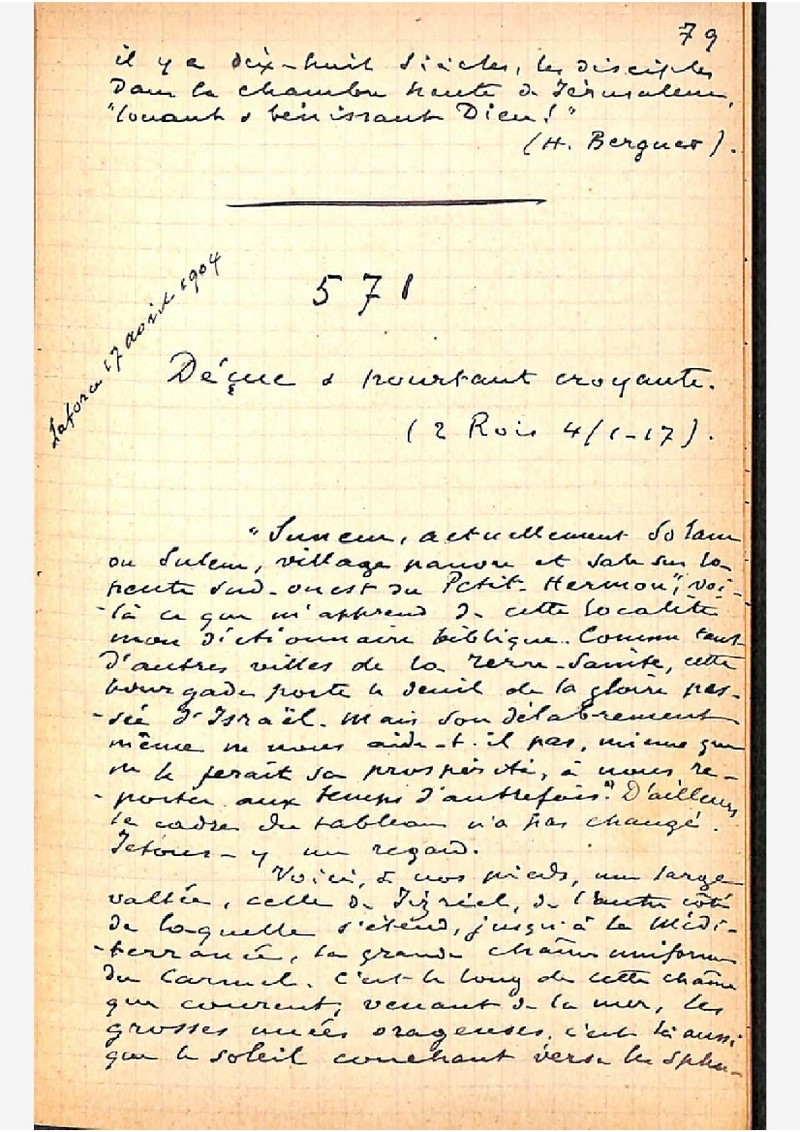 79
il y a dix-huit siècles, les disciples
dans la chambre haute de Jérusalem,
"louant & bénissant Dieu!"
(H. Berguer).
Laforce 17 août 1904
571
Déçue & pourtant croyante.
(2 Rois 4/1-17).
"Sunem, actuellement Solam
ou Sulem, village pauvre et sale sur la
pente sud-ouest du Petit-Hermon", voi-
-là ce que m'apprend de cette localité
mon dictionnaire biblique. Comme tant
d'autres villes de la Terre-Sainte, cette
bourgade porte le deuil de la gloire pas-
-sée d'Israël. Mais son délabrement
même ne nous aide-t-il pas, mieux que
ne le ferait sa prospérité, à nous re-
-porter aux temps d'autrefois? D'ailleurs
le cadre du tableau n'a pas changé.
Jetons-y un regard.
Voici, à nos pieds, une large
vallée, celle de Jizréel, de l'autre côté
de laquelle s'étend, jusqu'à la Médi-
-terranée, la grande chaîne uniforme
du Carmel. C'est le long de cette chaîne
que courent, venant de la mer, les
grosses nuées orageuses, c'est là aussi
que le soleil couchant verse les splen-